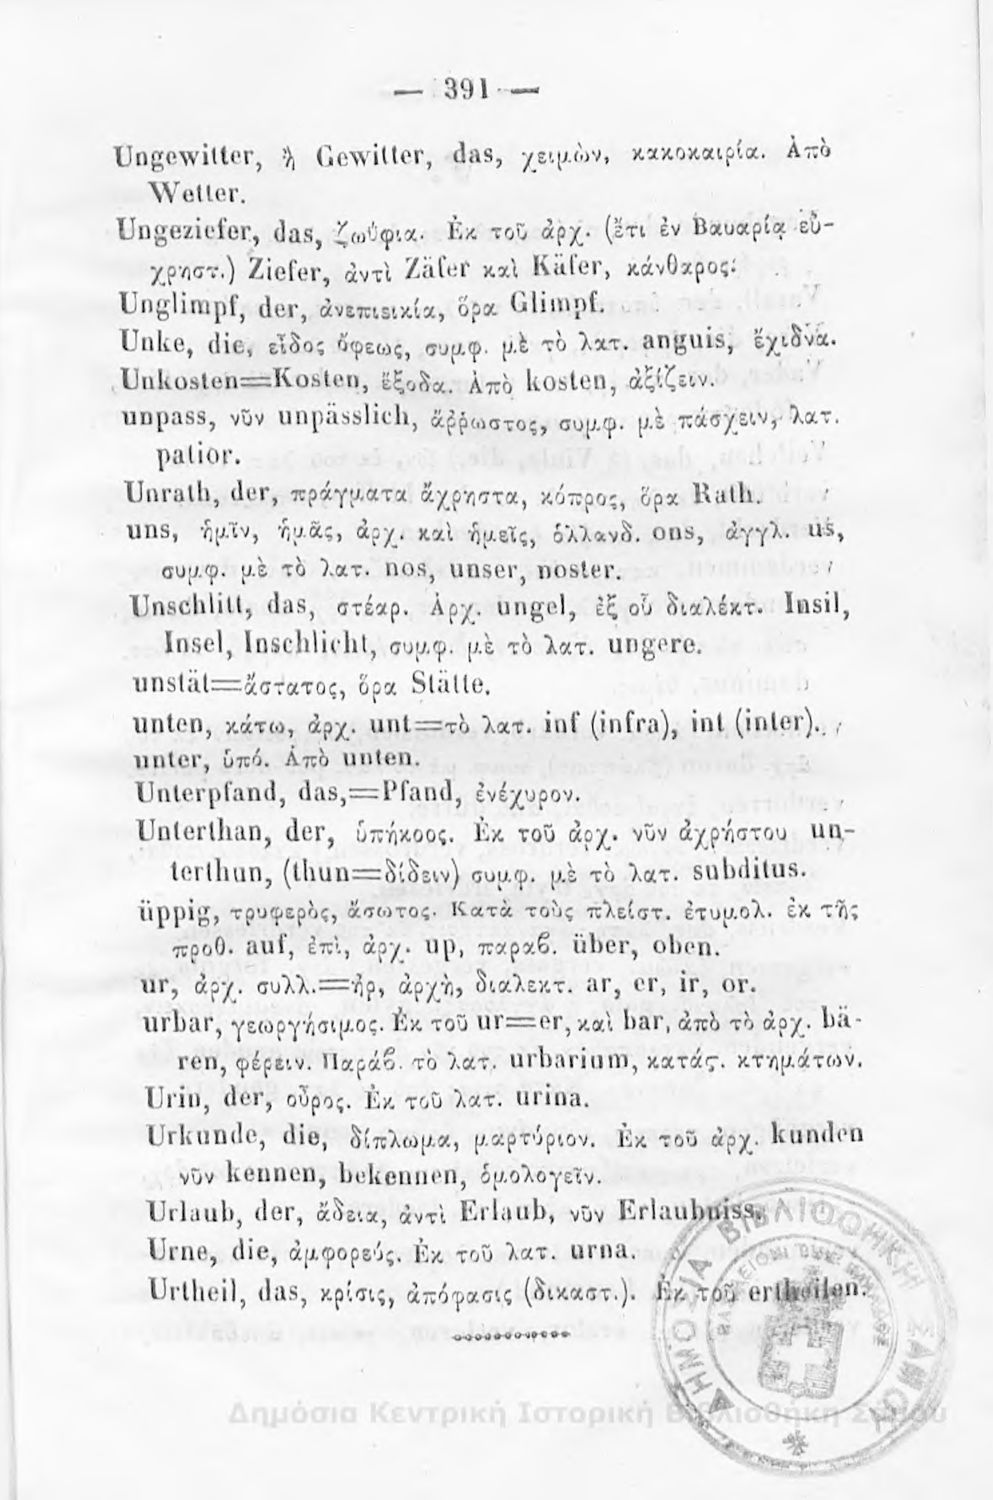 — 391 —
Ungewitter, ἢ Gewitter, das, χειμὼν, κακοκαιρία. Ἀπὸ
Wetter.
Ungeziefer, das, ζωΰφια. Ἐκ τοῦ ἀρχ. (ἔτι ἐν Βαυαρίᾳ εὔ-
χρηστ.) Ziefer, ἀντὶ Zäfer καὶ Käfer, κάνθαρος.
Unglimpf, der, ἀνεπιεικία, ὅρα Glimpf.
Unke, die, εἶδος ὄφεως, συμφ. μὲ τὸ λατ. anguis, ἔχιδνα.
Unkosten=Kosten, ἔξοδα. Ἀπὸ kosten, ἀξίζειν.
unpass, νῦν unpässlich, ἄῤῥωστος, συμφ. μὲ πάσχειν, λατ.
patior.
Unrath, der, πράγματα ἄχρηστα, κόπρος, ὅρα Rath.
uns, ἡμῖν, ἡμᾶς, ἀρχ. καὶ ἡμεῖς, ὁλλανδ. ons, ἀγγλ. us,
συμφ. μὲ τὸ λατ. nos, unser, noster.
Unschlitt, das, στέαρ. Ἀρχ. ungel, ἐξ οὗ διαλέκτ. Insil,
Insel, Inschlicht, συμφ. μὲ τὸ λατ. ungere.
unstät=ἄστατος, ὅρα Stätte.
unten, κάτω, ἀρχ. unt=τὸ λατ. inf (infra), int (inter).
unter, ὑπό. Ἀπὸ unten.
Unterpfand, das,=Pfand, ἐνέχυρον.
Unterthan, der, ὑπήκοος. Ἐκ τοῦ ἀρχ. νῦν ἀχρήστου un-
terthun, (thun=δίδειν) συμφ. μὲ τὸ λατ. subditus.
üppig, τρυφερὸς, ἄσωτος. Κατὰ τοὺς πλείστ. ἐτυμολ. ἐκ τῆς
προθ. auf, ἐπὶ, ἀρχ. up, παραβ. über, oben.
ur, ἀρχ. συλλ.=ἠρ, ἀρχὴ, διαλεκτ. ar, er, ir, or.
urbar, γεωργήσιμος. Ἐκ τοῦ ur=er, καὶ bar, ἀπὸ τὸ ἀρχ. bä-
ren, φέρειν. Παράβ. τὸ λατ. urbarium, κατάς. κτημάτων.
Urin, der, οὖρος. Ἐκ τοῦ λατ. urina.
Urkunde, die, δίπλωμα, μαρτύριον. Ἐκ τοῦ ἀρχ. kunden
νῦν kennen, bekennen, ὁμολογεῖν.
Urlaub, der, ἄδεια, ἀντὶ Erlaub, νῦν Erlaubniss.
Urne, die, ἀμφορεύς. Ἐκ τοῦ λατ. urna.
Urtheil, das, κρίσις, ἀπόφασις (δικαστ.). Ἐκ τοῦ ertheilen.
ΔΗΜΟΣΙΑ ΒΙΒΛΙΟΘΗΚΗ ΣΑΜΟΥ
Δημόσια Κεντρική Ιστορική Βιβλιοθήκη Σάμου